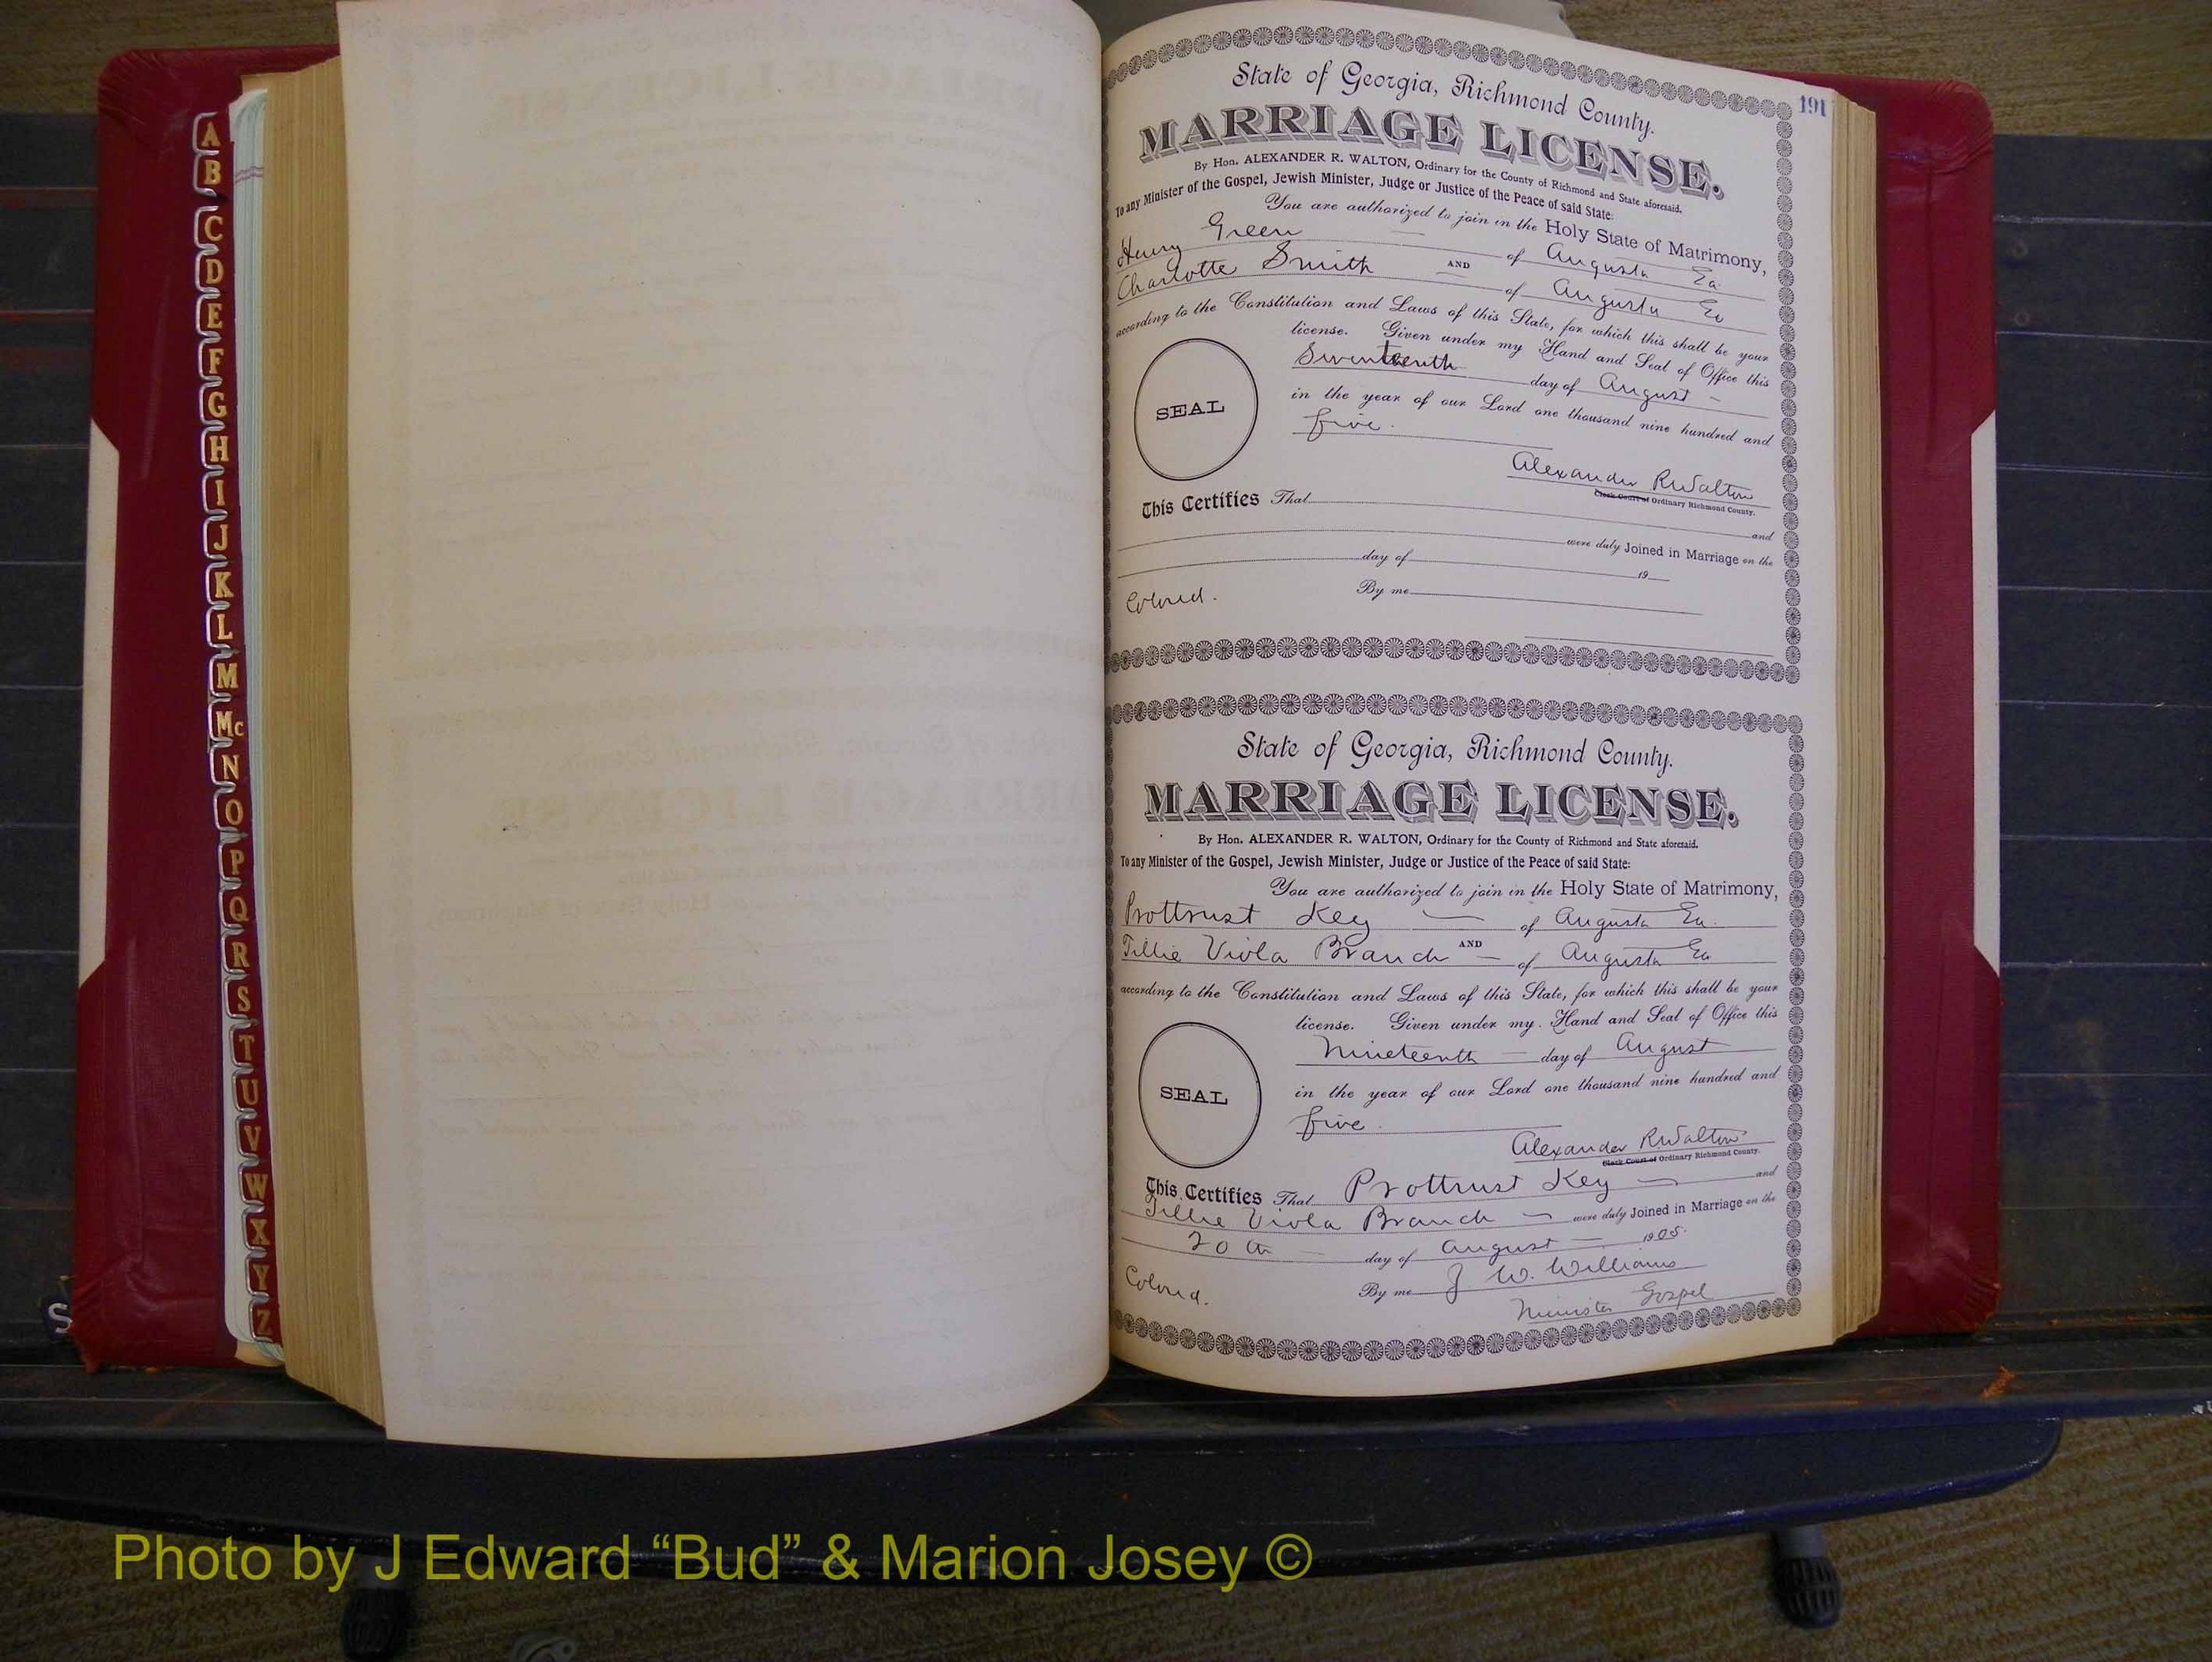 A
B
C
D
E
F
G
H
I
J
K
L
M
Mc
N
O
P
Q
R
S
T
U
V
W
X
Y
Z
S
191
State of Georgia, Richmond County.
MARRIAGE LICENSE.
By Hon. ALEXANDER R. WALTON, Ordinary for the County of Richmond and State aforesaid.
To any Minister of the Gospel, Jewish Minister, Judge or Justice of the Peace of said State:
You are authorized to join in the Holy State of Matrimony,
Henry Green of Augusta Ga
AND
Charlotte Smith of Augusta Ga
according to the Constitution and Laws of this State, for which this shall be your
license. Given under my Hand and Seal of Office this
Seventeenth day of August
in the year of our Lord one thousand nine hundred and
five.
SEAL
Alexander R Walton
Clerk Court of Ordinary Richmond County.
This Certifies That and
were duly Joined in Marriage on the
day of 19
Colored. By me
State of Georgia, Richmond County.
MARRIAGE LICENSE.
By Hon. ALEXANDER R. WALTON, Ordinary for the County of Richmond and State aforesaid.
To any Minister of the Gospel, Jewish Minister, Judge or Justice of the Peace of said State:
You are authorized to join in the Holy State of Matrimony,
Prottrust Key of Augusta Ga.
AND
Tillie Viola Branch of Augusta Ga
according to the Constitution and Laws of this State, for which this shall be your
license. Given under my Hand and Seal of Office this
Nineteenth day of August
in the year of our Lord one thousand nine hundred and
five.
SEAL
Alexander R Walton
Clerk Court of Ordinary Richmond County.
This Certifies That Prottrust Key and
Tillie Viola Branch were duly Joined in Marriage on the
20th day of August 1905.
Colored. By me J W. Williams
Minister Gospel
Photo by J Edward “Bud” & Marion Josey ©